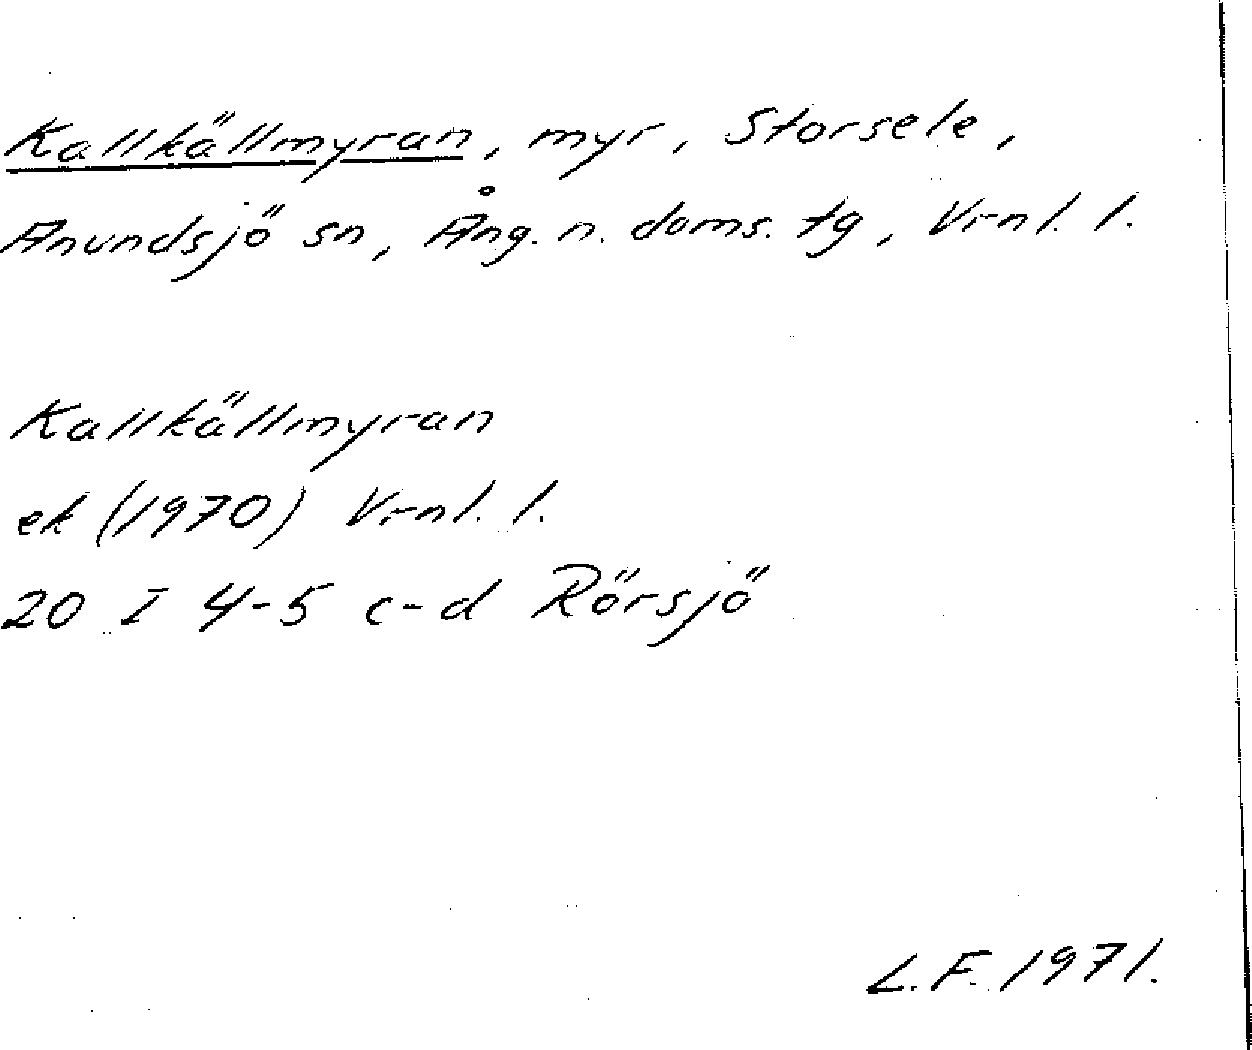 Kallkällmyran, myr, Storsele,
Anundsjö sn, Ång. n. doms. tg, Vrnl. l.
Kallkällmyran
ek (1970) Vrnl. l.
20 I 4-5 c-d Rörsjö
L.F. 1971.